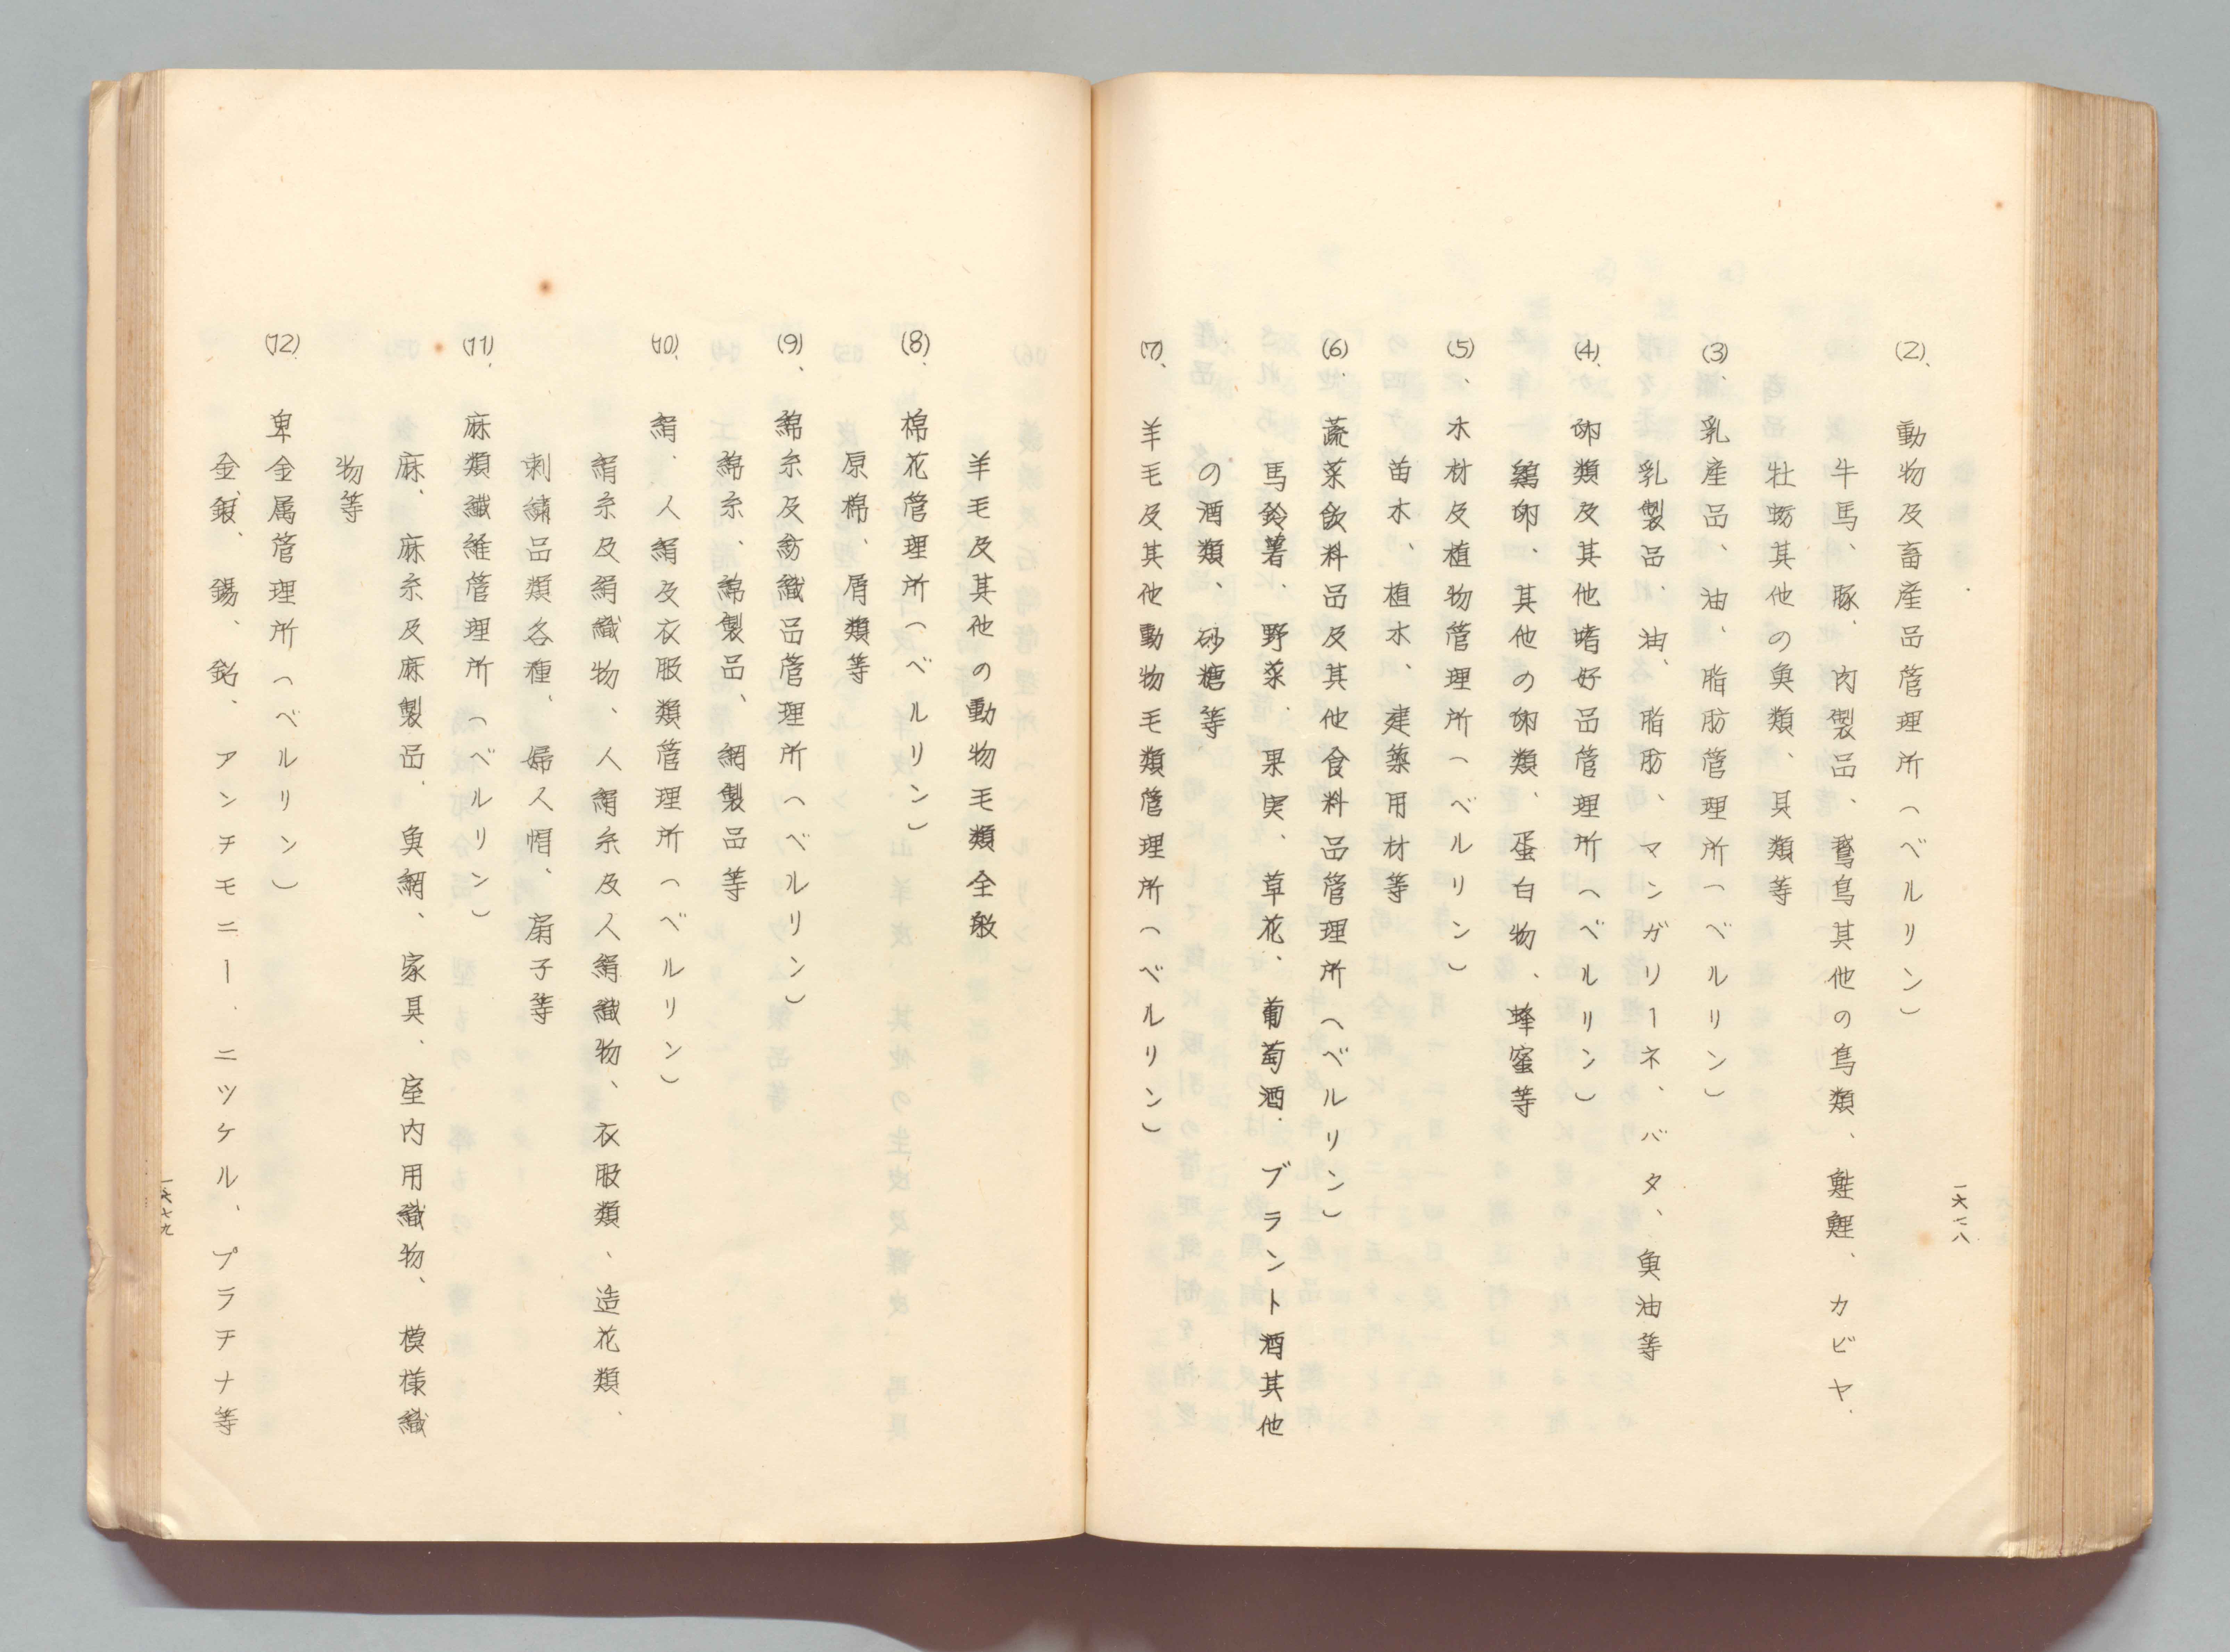 (2)、動物及畜産品管理所(ベルリン)
牛馬、豚、肉製品、鵞鳥其他の鳥類、鮭鯉、カビヤ、
牡蛎其他の魚類、貝類等
(3)、乳産品、油、脂肪管理所(ベルリン)
乳製品、油、脂肪、マンガリーネ、バタ、魚油等
(4)、卵類及其他嗜好品管理所(ベルリン)
鶏卵、其他の卵類、蛋白物、蜂蜜等
(5)、木材及植物管理所(ベルリン)
苗木、植木、建築用材等
(6)、蔬菜飲料品及其他食料品管理所(ベルリン)
馬鈴薯、野菜、果実、草花、葡萄酒、ブラント酒其他
の酒類、砂糖等
(7)、羊毛及其他動物毛類管理所(ベルリン)
一六七八
羊毛及其他の動物毛類全般
(8)、棉花管理所(ベルリン)
原棉、屑類等
(9)、綿糸及紡織品管理所(ベルリン)
綿糸、綿製品、網製品等
(10)、絹、人絹及衣服類管理所(ベルリン)
絹糸及絹織物、人絹糸及人絹織物、衣服類、造花類、
刺繍品類各種、婦人帽、扇子等
(11)、麻類繊維管理所(ベルリン)
麻、麻糸及麻製品、魚網、家具、室内用織物、模様織
物等
(12)、卑金属管理所(ベルリン)
金、銀、錫、鉛、アンチモニー、ニツケル、プラチナ等
一六七九